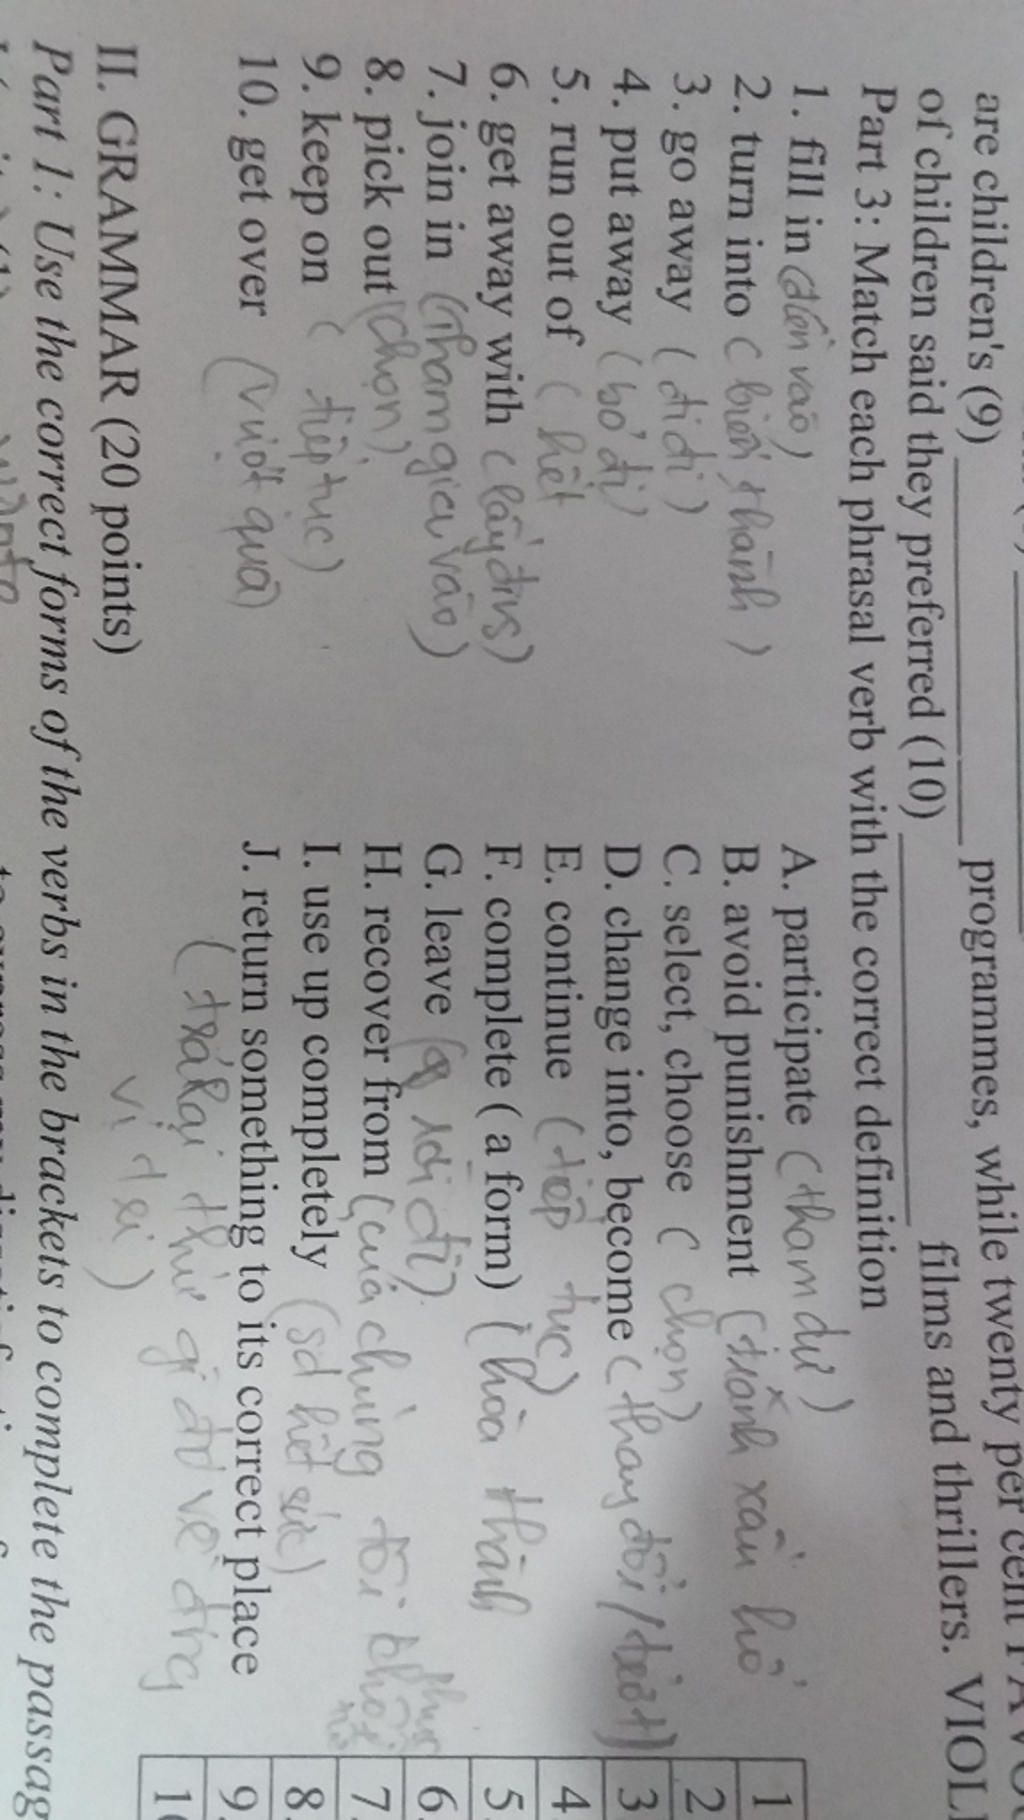 are children's (9) __________ programmes, while twenty per cent
of children said they preferred (10) __________ films and thrillers. VIOL
Part 3: Match each phrasal verb with the correct definition
1. fill in (điền vào) A. participate (tham dự)
2. turn into (biến thành) B. avoid punishment (tránh xấu hổ
3. go away (đi đi) C. select, choose (chọn)
4. put away (bỏ đi) D. change into, become (thay đổi/
5. run out of (hết E. continue (tiếp tục)
6. get away with (lấy F. complete ( a form) (hoà thành
7. join in (tham gia vào) G. leave rời đi).
8. pick out (chọn) H. recover from (của chúng tôi
9. keep on ( tiếp tục) I. use up completely (sd hết sức)
10. get over (vượt quá) J. return something to its correct place
(trả lại thứ gì đó về đúng
vị trí)
1
2
3
4
5
6.
7.
8.
9.
II. GRAMMAR (20 points)
Part 1: Use the correct forms of the verbs in the brackets to complete the passag